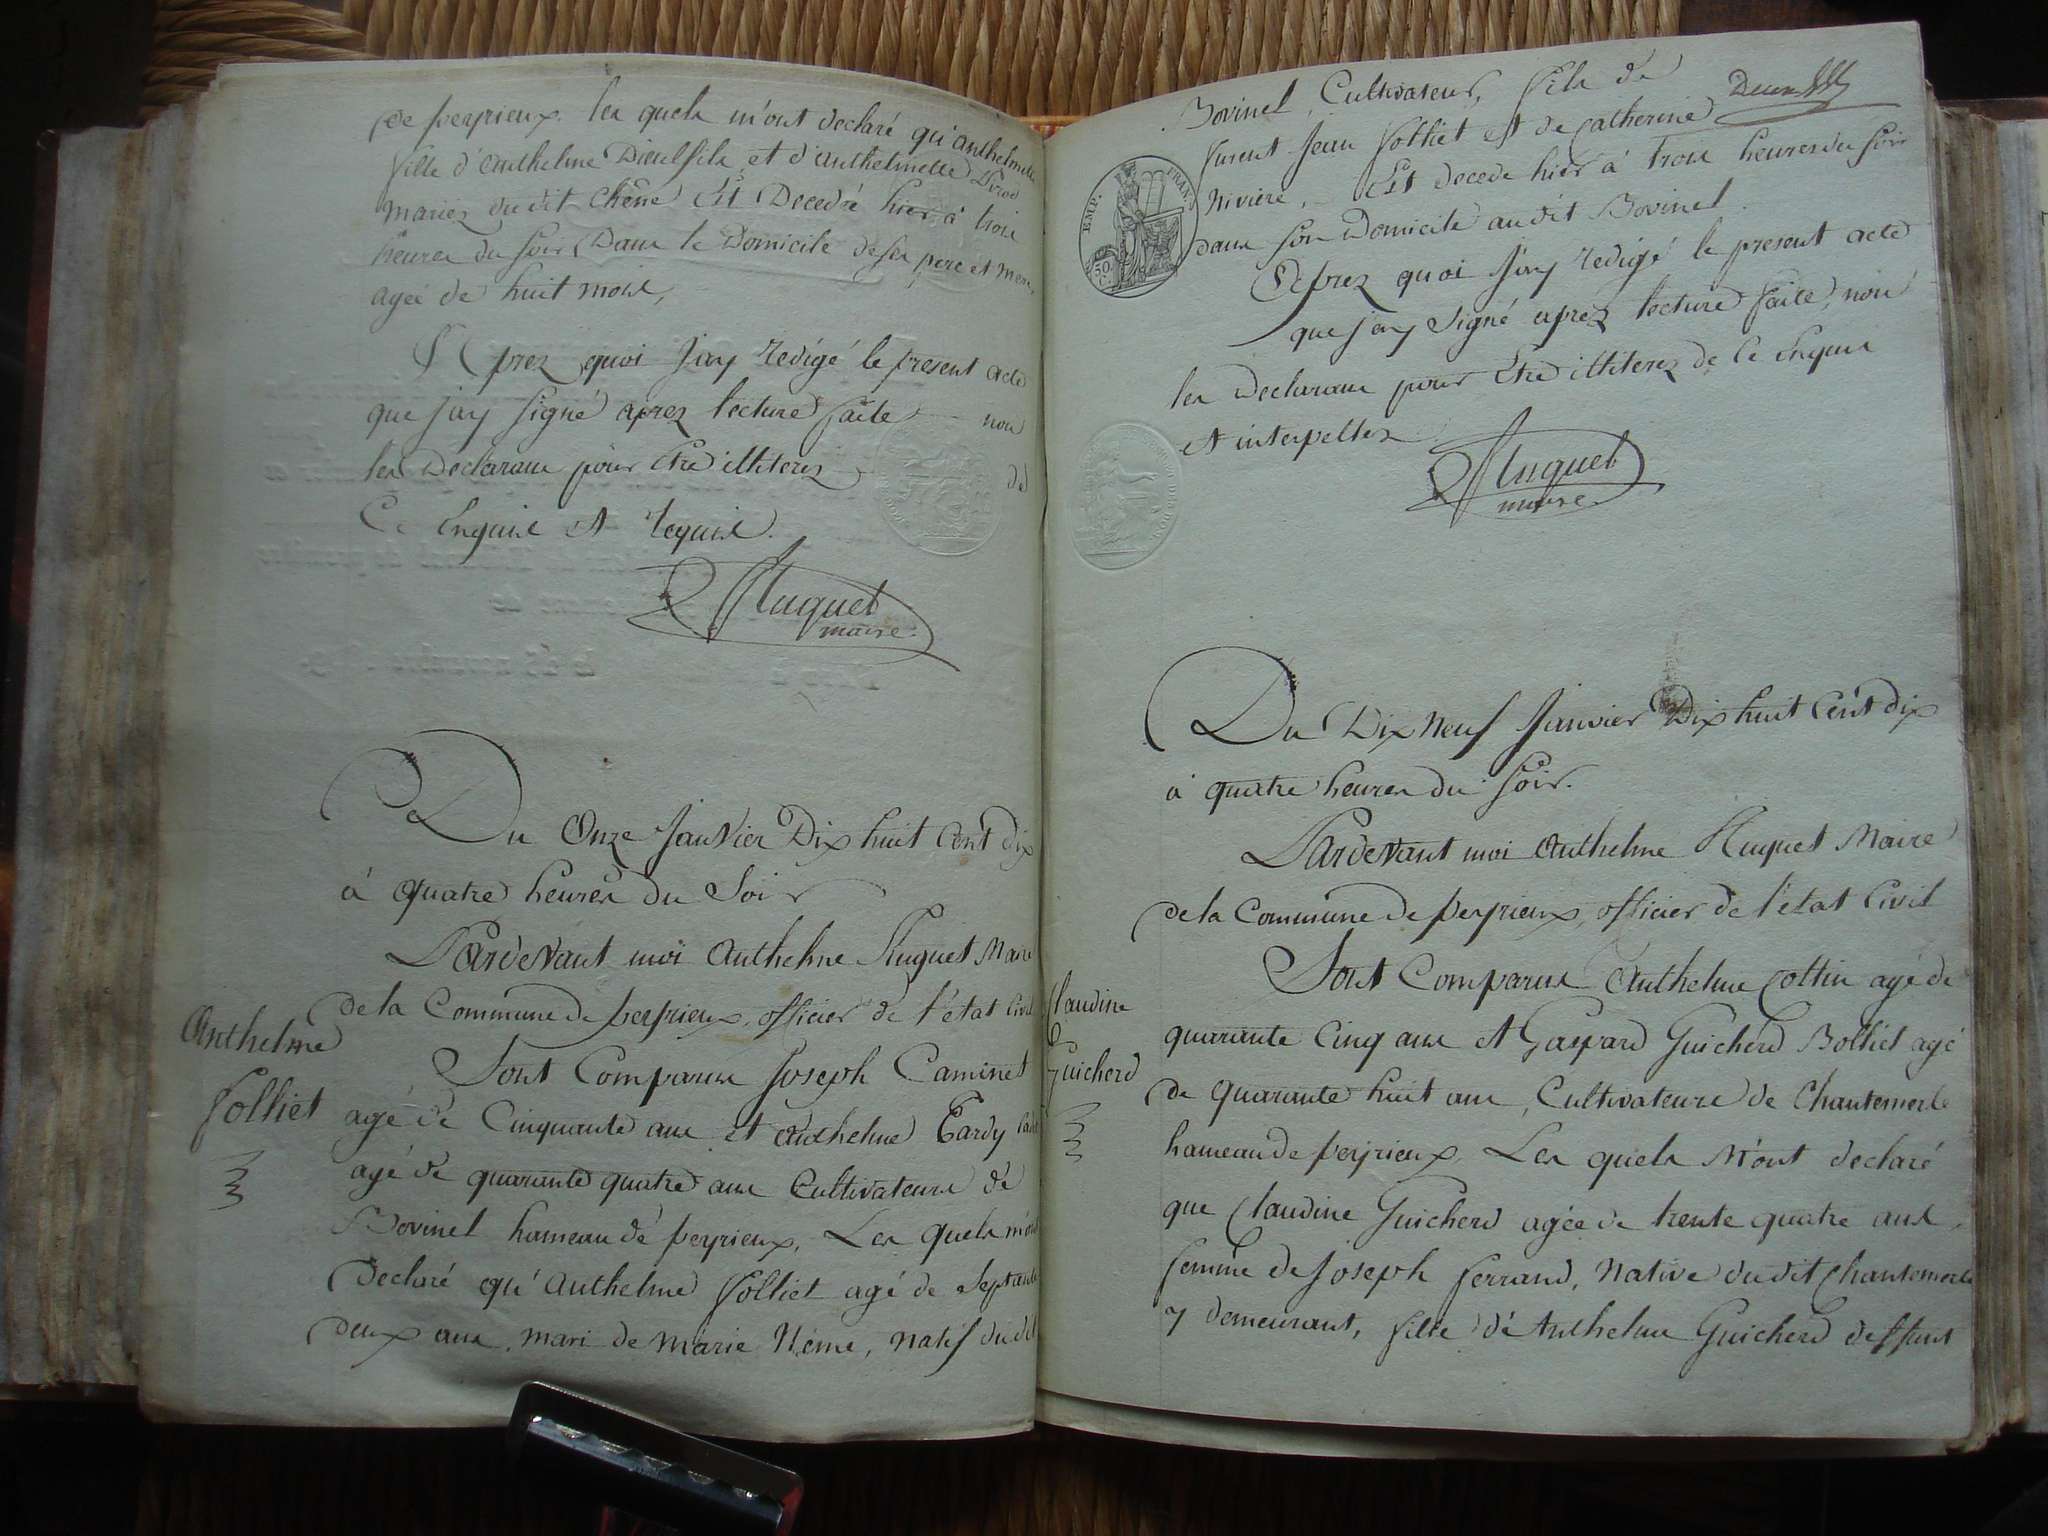 de peyrieux. les quels m'ont declaré qu'anthelmette
fille d'Anthelme Dieulefils et d'anthelmette
mariés du dit Chêne Est Decedré hier, à trois
heures du soir, Dans le Domicile de ses pere et mere,
agée de huit mois,
Aprez quoi J'ay redigé le present acte
que j'ay signé aprez lecture faite non
les Declarans pour être illiterez de
Ce Enquis et requis.
Huguet
maire.
Du Onze Janvier Dix huit Cent dix
à quatre heures du Soir
Pardevant moi Anthelme Huguet Maire
de la Commune de peyrieux, officier de l'état Civil
Anthelme
Jolliet
Sont Comparus Joseph Caminet
agé de Cinquante ans et Anthelme Tardy
agé de quarante quatre ans Cultivateurs de
Bovinel hameau de peyrieux, Les quels m'ont
declaré qu'Anthelme Jolliet agé de septante
deux ans, mari de Marie Néme, natif du dit
Bovinel, Cultivateur, fils de
furent Jean Jolliet et de Catherine
Niviere, Est decede hier à trois heures du soir
dans son Domicile au dit Bovinel.
EMP. FRAN.
50 C.
Aprez quoi J'ay redigé le present acte
que j'ay signé aprez lecture faite, non
les Declarans pour être illiterez de Ce Enquis
et interpellez
Huguet
maire
Du Dix Neuf Janvier Dix huit Cent dix
à quatre heures du soir.
Pardevant moi Anthelme Huguet Maire
de la Commune de peyrieux, officier de l'état Civil
Claudine
Guicherd
Sont Comparus Anthelme Cottin agé de
quarante Cinq ans et Gaspard Guicherd Bolliet agé
de quarante huit ans, Cultivateurs de Chantemerle
hameau de peyrieux, Les quels M'ont declaré
que Claudine Guicherd agée de trente quatre ans,
femme de Joseph Ferrand, Native du dit Chantemerle
y demeurant, fille d'Anthelme Guicherd deffunt